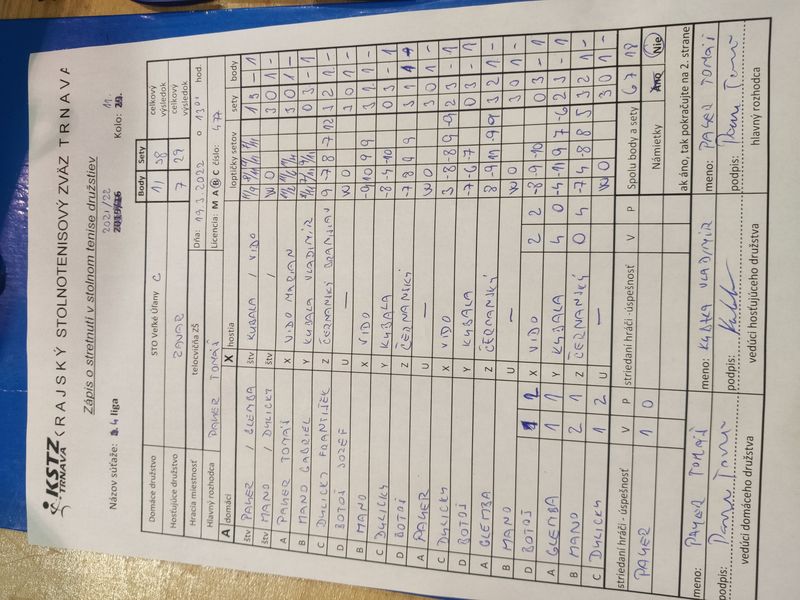 KSTZ
TRNAVA
KRAJSKÝ STOLNOTENISOVÝ ZVÄZ TRNAVA
Zápis o stretnutí v stolnom tenise družstiev
2021/22 11.
Názov súťaže: 4 liga Kolo:
Body Sety
Domáce družstvo STO Veľké Úľany C 11 38 celkový výsledok
Hosťujúce družstvo ZAVAR 7 29 celkový výsledok
Hracia miestnosť telocvičňa ZŠ Dňa: 19.3.2022 o 13 00 hod.
Hlavný rozhodca PAYER TOMÁŠ Licencia: M A B C číslo: 477
A domáci X hostia loptičky setov sety body
štv PAYER / GLEMBA štv KUBALA / VIDO 1 3 - 1
štv MANO / DULICKY štv / WO 3 0 1 -
A PAYER TOMÁŠ X VIDO MARIAN 3 0 1 -
B MANO GABRIEL Y KUBALA VLADIMÍR 0 3 - 1
C DULICKY FRANTIŠEK Z ČERNANSKÝ BRANISLAV 9 -7 8 -7 12 3 2 1 -
D BOTOŠ JOZEF U — WO 3 0 1 -
B MANO X VIDO -9 10 9 9 3 1 1 -
C DULICKY Y KUBALA -8 -4 -10 0 3 - 1
D BOTOŠ Z ČERNANSKÝ -7 8 9 9 3 1 1 -
A PAYER U — WO 3 0 1 -
C DULICKY X VIDO 3 -8 -8 9 -9 2 3 - 1
D BOTOŠ Y KUBALA -7 -6 -7 0 3 - 1
A GLEMBA Z ČERNANSKÝ 8 -9 11 -9 9 3 2 1 -
B MANO U — WO 3 0 1 -
D BOTOŠ 2 X VIDO 2 2 -8 -9 -10 0 3 - 1
A GLEMBA 1 1 Y KUBALA 4 0 -4 -11 9 7 -6 2 3 - 1
B MANO 2 1 Z ČERNANSKÝ 0 4 -7 4 -8 8 5 3 2 1 -
C DULICKY 1 2 U — WO 3 0 1 -
striedaní hráči - úspešnosť V P striedaní hráči - úspešnosť V P Spolu body a sety 67 18
PAYER 1 0 Námietky Áno Nie
ak áno, tak pokračujte na 2. strane
meno: PAYER TOMÁŠ meno: VLADIMÍR meno: PAYER TOMÁŠ
podpis: podpis: podpis:
vedúci domáceho družstva vedúci hosťujúceho družstva hlavný rozhodca